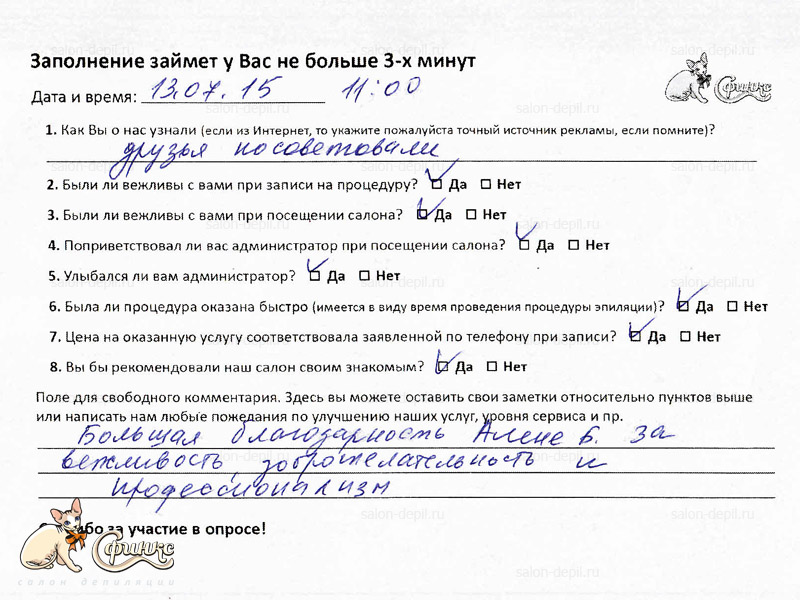 Заполнение займет у Вас не больше 3-х минут
Дата и время: 13.07.15 11:00
Сфинкс
1. Как Вы о нас узнали (если из Интернет, то укажите пожалуйста точный источник рекламы, если помните)?
друзья посоветовали
2. Были ли вежливы с вами при записи на процедуру? Да Нет
3. Были ли вежливы с вами при посещении салона? Да Нет
4. Поприветствовал ли вас администратор при посещении салона? Да Нет
5. Улыбался ли вам администратор? Да Нет
6. Была ли процедура оказана быстро (имеется в виду время проведения процедуры эпиляции)? Да Нет
7. Цена на оказанную услугу соответствовала заявленной по телефону при записи? Да Нет
8. Вы бы рекомендовали наш салон своим знакомым? Да Нет
Поле для свободного комментария. Здесь вы можете оставить свои заметки относительно пунктов выше
или написать нам любые пожедания по улучшению наших услуг, уровня сервиса и пр.
Большая благодарность Алене Б. за
вежливость, доброжелательность и
профессионализм
за участие в опросе!
Сфинкс
салон депиляции
salon-depil.ru